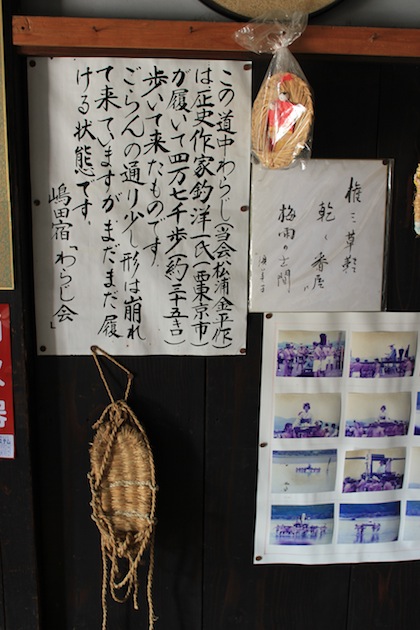 この道中わらじ(当会松浦金平作)
は歴史作家釣洋一氏(西東京市)
が履いて四万七千歩(約三十五キロ)
歩いて来たものです。
ごらんの通り少し形は崩れ
て来ていますがまだまだ履
ける状態です。
嶋田宿「わらじ会」
権三草鞋
乾く番屋に
梅雨の玄関
器